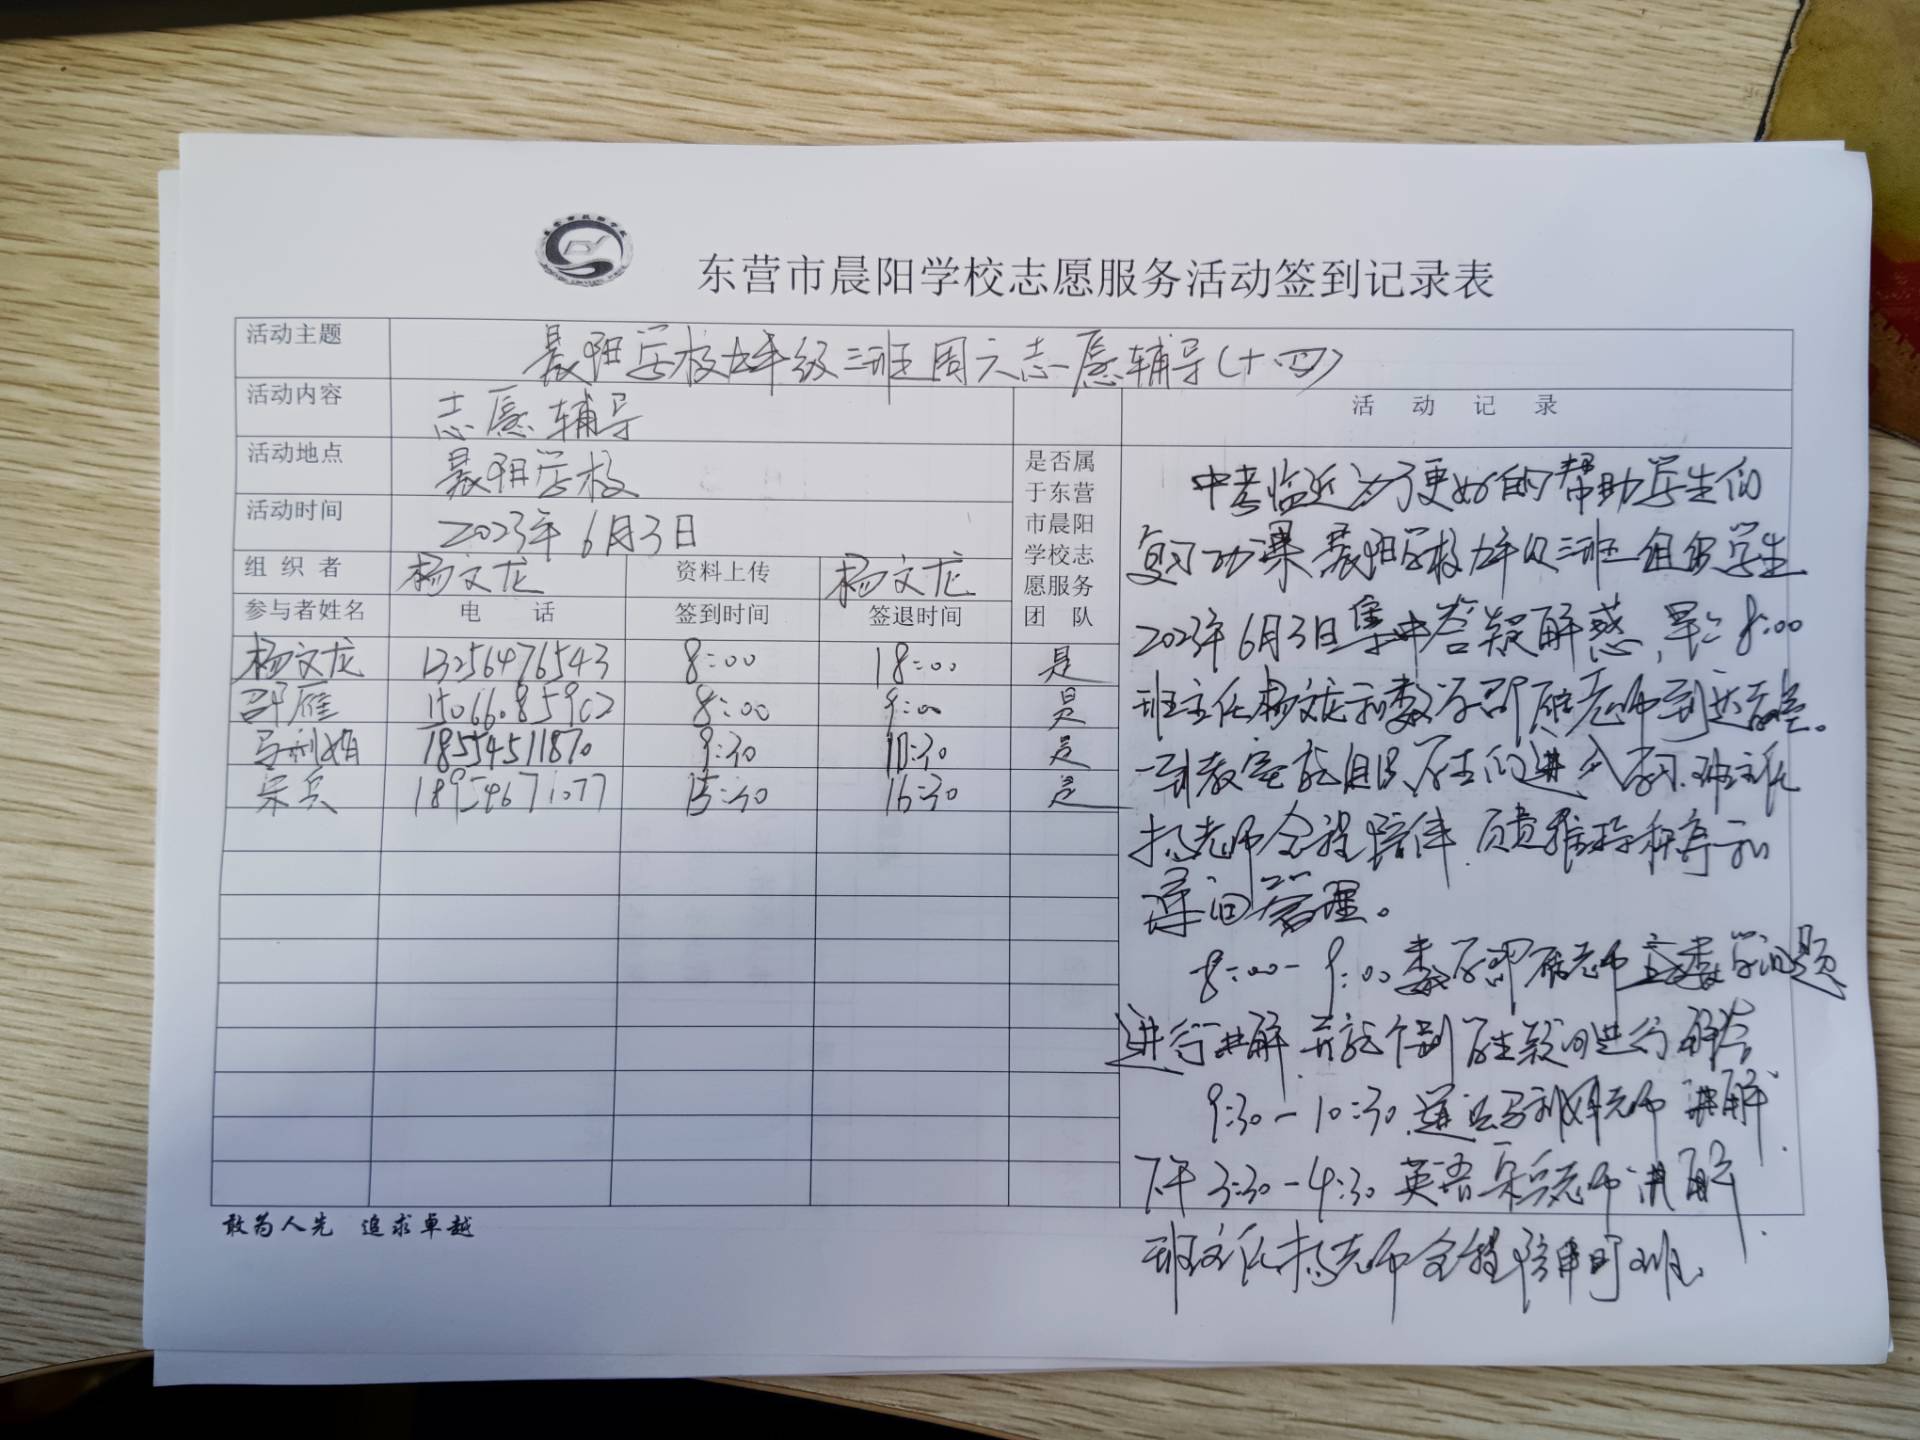 东营市晨阳学校志愿服务活动签到记录表
活动主题 晨阳学校九年级三班周六志愿辅导(十四)
活动内容 志愿辅导
活动地点 晨阳学校
活动时间 2023年6月3日
组织者 杨文龙 资料上传 杨文龙
参与者姓名 电话 签到时间 签退时间
是否属
于东营
市晨阳
学校志
愿服务
团队
杨文龙 13256476543 8:00 18:00 是
邵雁 15066085902 8:00 9:00 是
马利娟 18554511870 9:30 10:30 是
宋兵 18954671077 15:30 16:30 是
活动记录
中考临近为了更好的帮助学生们
复习功课晨阳学校九年级三班组织学生
2023年6月3日集中答疑解惑,早上8:00
班主任杨文龙和数学邵雁老师到达教室。
一到教室就组织学生们进入学习.班主任
杨老师全程陪伴.负责维持秩序和
课间管理。
8:00-9:00数学邵雁老师 数学问题
进行讲解.并就个别学生疑问进行解答
9:30-10:30.道法马利娟老师讲解.
下午3:30-4:30英语宋兵老师讲解.
班主任杨老师全程陪
敢为人先 追求卓越